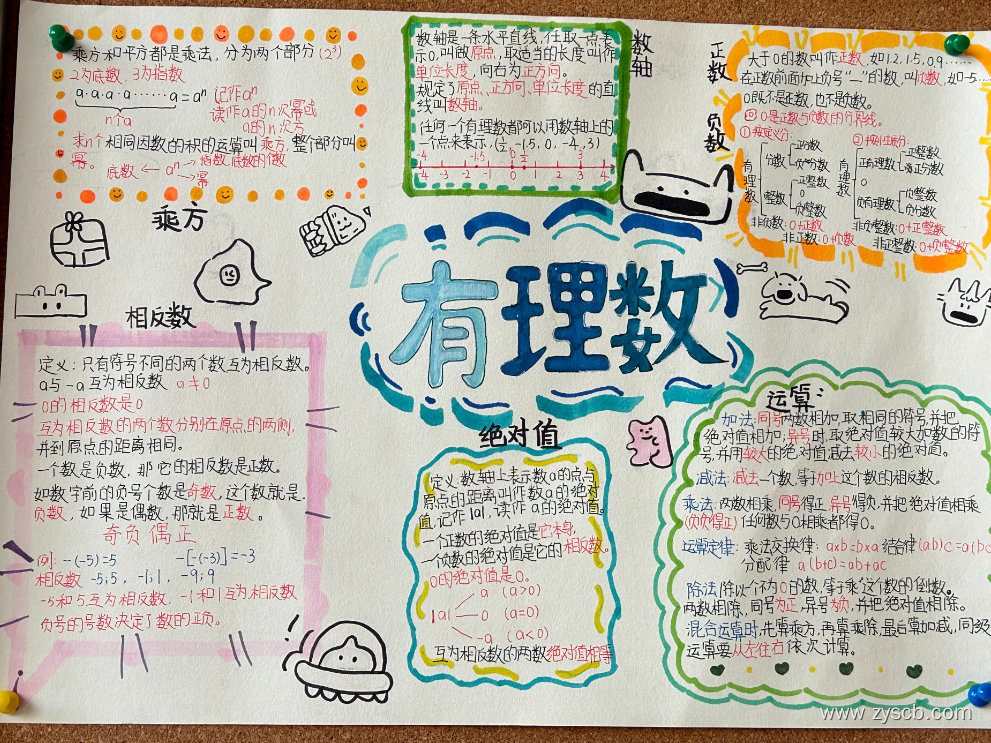 乘方和平方都是乘法，分为两个部分(2³)
2为底数，3为指数
a·a·a·a······a=aⁿ 记作aⁿ
n个a
读作a的n次幂或
a的n次方
求n个相同因数的积的运算叫乘方，整个部分叫
幂。
底数 ← aⁿ → 指数，底数的个数
→ 幂
乘方
数轴是一条水平直线，任取一点表
示0，叫做原点，取适当的长度叫作
单位长度，向右为正方向。
规定了原点、正方向、单位长度的直
线叫数轴。
任何一个有理数都可以用数轴上的
一个点来表示，(½，-1.5，0，-4，3)
-4 -1.5 0 ½ 3
-4 -3 -2 -1 0 1 2 3 4
数轴
正数
负数
大于0的数叫作正数，如1.2，1.5，0.9……
在正数前面加上负号“—”的数，叫负数，如-5……
0既不是正数，也不是负数。
0是正数与负数的分界线。
①按定义分：
有理数
分数
正分数
负分数
整数
正整数
0
负整数
②按性质分：
有理数
正有理数
正整数
正分数
0
负有理数
负整数
负分数
非负数：0+正数
非正数：0+负数
非负整数：0+正整数
非正整数：0+负整数
有理数
相反数
定义：只有符号不同的两个数互为相反数。
a与-a互为相反数 a≠0
0的相反数是0
互为相反数的两个数分别在原点的两侧，
并到原点的距离相同。
一个数是负数，那它的相反数是正数。
如数字前的负号个数是奇数，这个数就是
负数，如果是偶数，那就是正数。
奇负偶正
例：-(-5)=5 -[-(-3)]=-3
相反数 -5;5，-1;1，-9;9
-5和5互为相反数，-1和1互为相反数
负号的号数决定了数的正负。
绝对值
定义：数轴上表示数a的点与
原点的距离叫作数a的绝对
值，记作|a|，读作a的绝对值。
一个正数的绝对值是它本身，
一个负数的绝对值是它的相反数。
0的绝对值是0。
a （a>0）
|a| 0 （a=0）
-a （a<0）
互为相反数的两数绝对值相等
运算：
加法：同号两数相加，取相同的符号，并把
绝对值相加，异号时，取绝对值较大加数的符
号，并用较大的绝对值减去较小的绝对值。
减法：减去一个数，等于加上这个数的相反数。
乘法：两数相乘，同号得正，异号得负，并把绝对值相乘
（负负得正）任何数与0相乘都得0。
运算定律：乘法交换律：a×b=b×a 结合律(ab)c=a(bc
分配律 a(b+c)=ab+ac
除法：除以一个不为0的数，等于乘这个数的倒数。
两数相除，同号为正，异号为负，并把绝对值相除。
混合运算时，先算乘方，再算乘除，最后算加减，同级
运算要从左往右依次计算。
www.zyscb.com